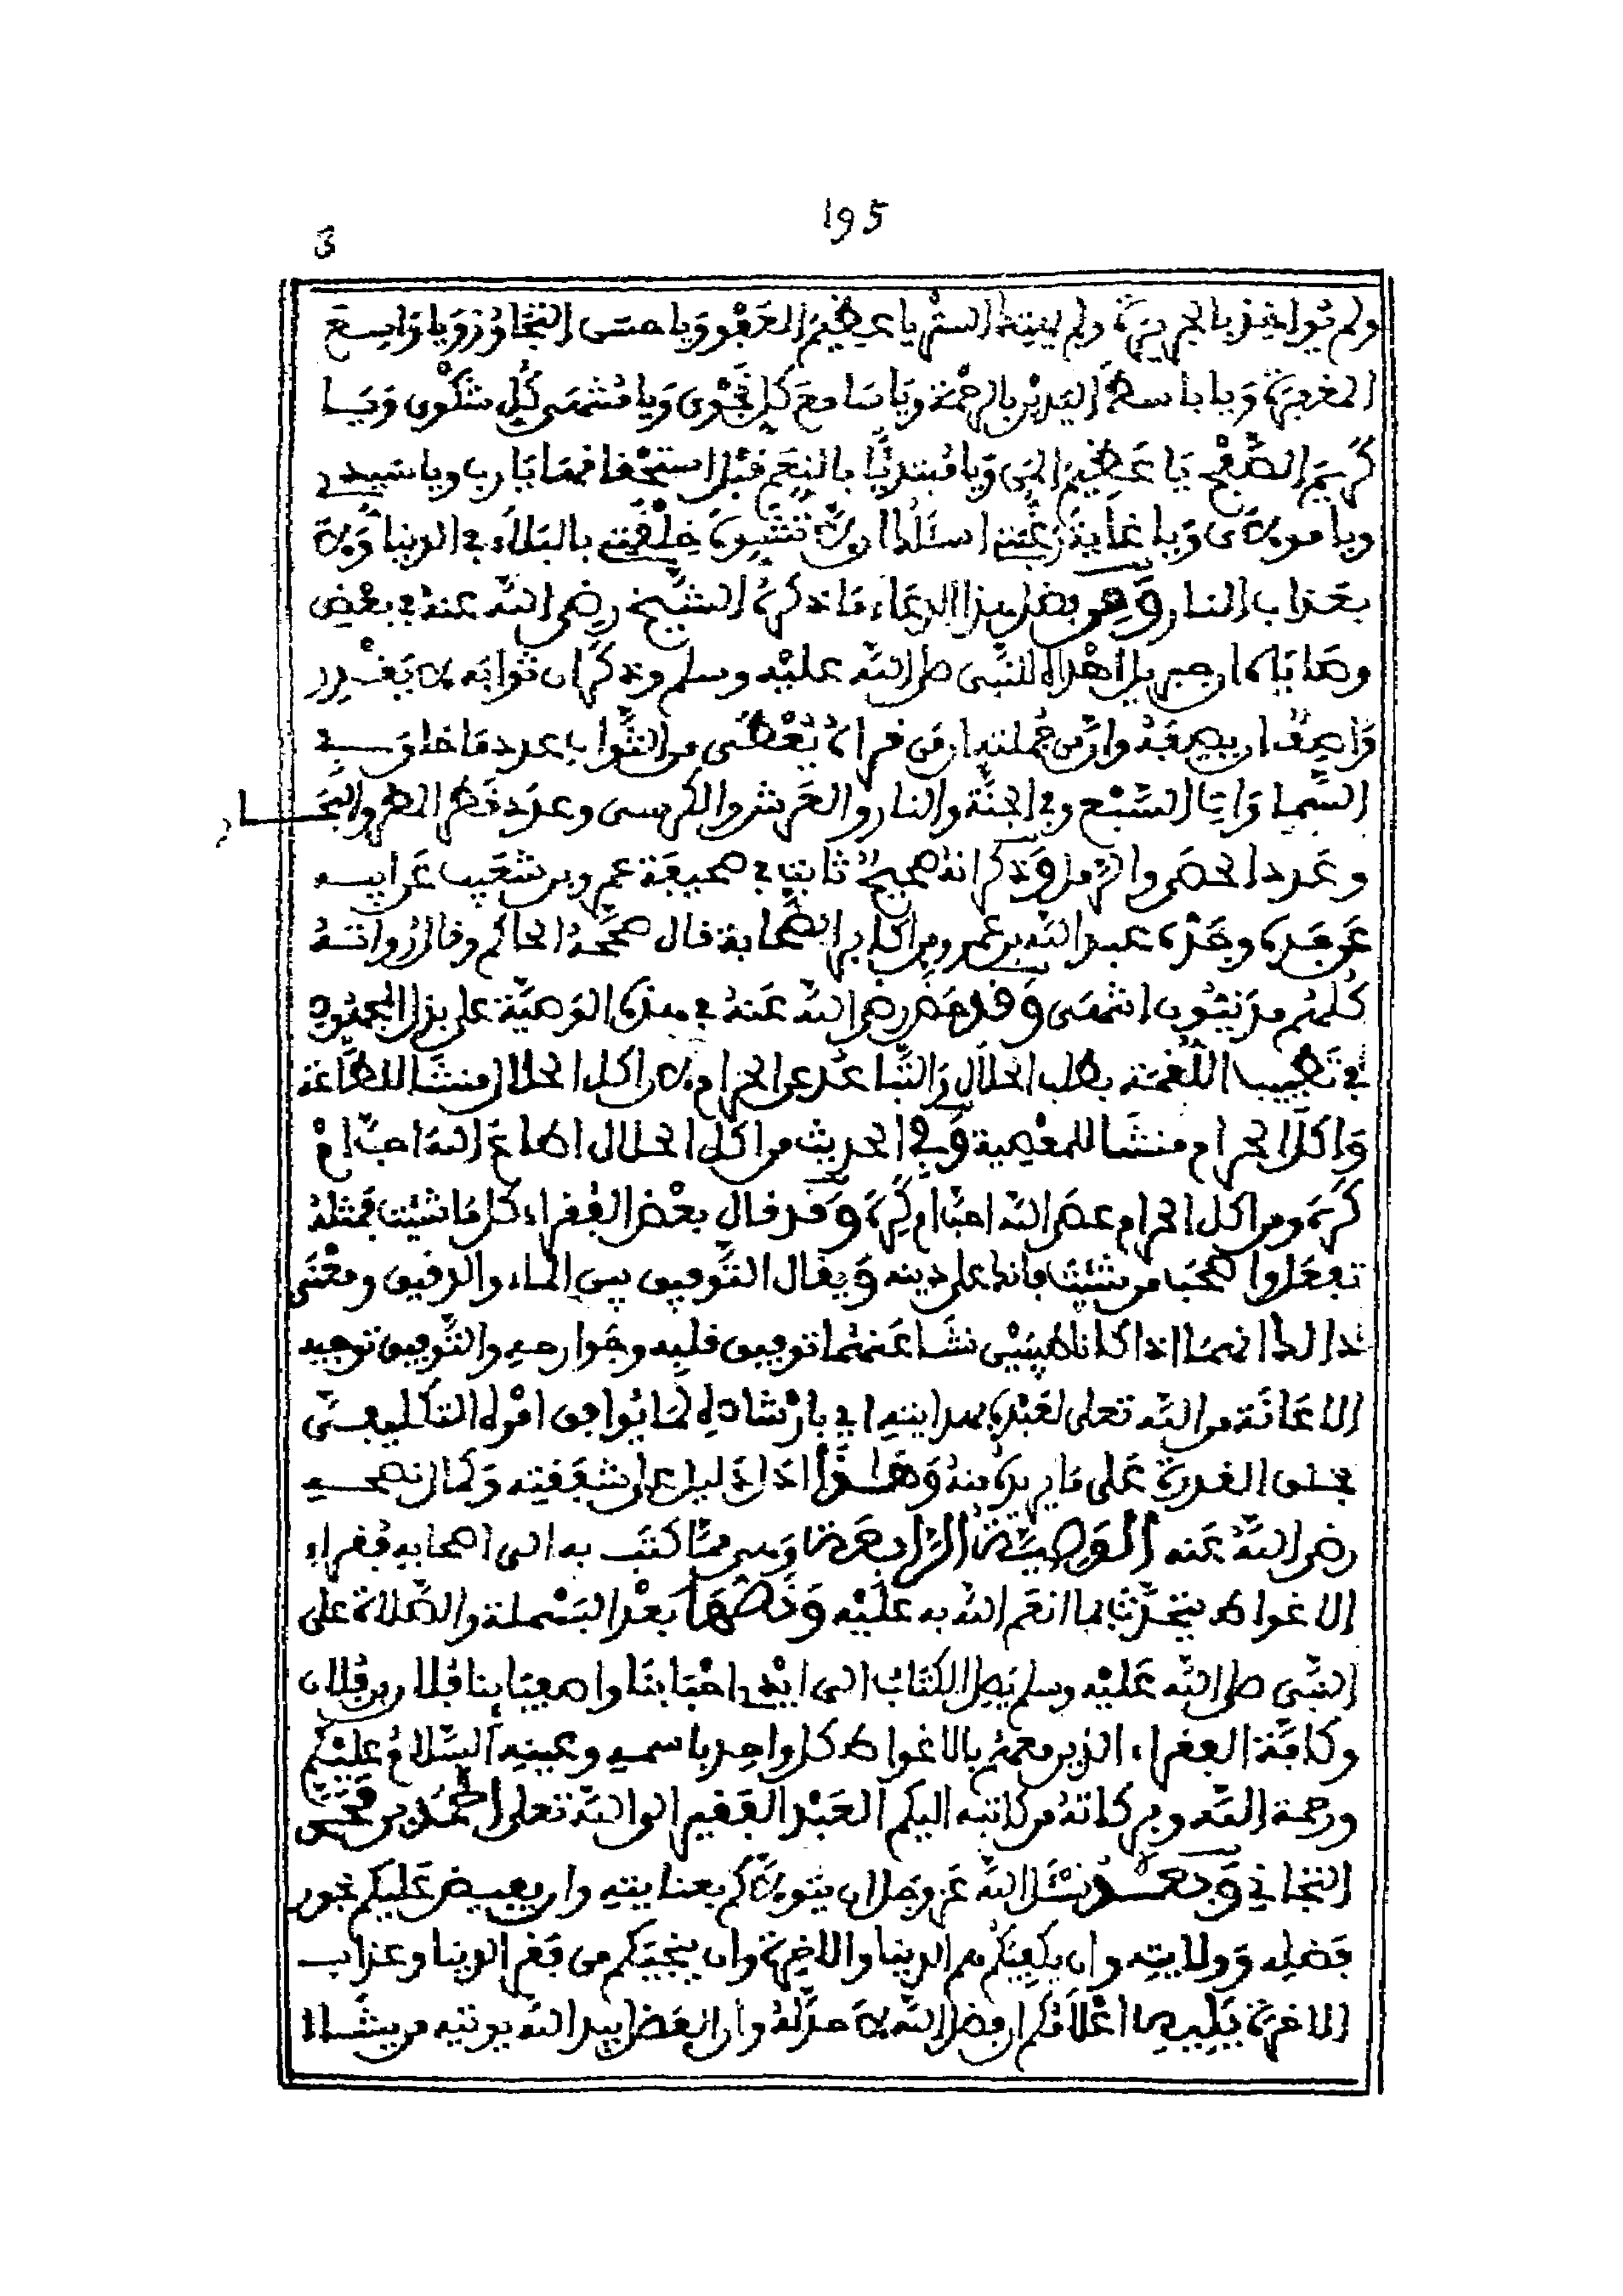 195
3
ولم يُواخِذْ بالجريرة ولم يهتك الستر يا عظيم العَفْو وَيا حسَن التجَاوُز وَيا وَاسِعَ
المغفِرة وَيا باسط اليدَيْن بالرحْمة وَيَا سَامعَ كل نَجْوى وَيا مُنتهَى كُلِّ شكْوى وَيَا
كرِيمَ الصَّفْحِ يَا عَظِيمَ المَنِّ وَيا مُبتدِئًا بالنِعَم قبْل استحْقاقهَا يَا رب ويا سَيِّدي
ويا مولاَى وَيا غَايَةَ رَغْبَتِي اسئَلُكَ ان لا تُشَوِّه خِلْقتِي بالبَلَاء في الدنيا وَلا
بعَذاب النار وَمن فضل هذا الدعَاء مَا ذكره الشيخ رضِي اللّه عنهُ في بعْض
وصَايَاه ان جبريل اهْداه للنَّبى صلى اللّه عليْه وسلم وذكَر ان ثوابَه لا يَقْدِر
وَاصِفٌ ان يصِفَهُ وانّ من جُملته ان مَن قرأه يُعْطَى من الثَّواب عدد مَا خلق في
السَّماوَات السَّبْع وفي الجنَّة والنار والعَرْش والكرسى وعدَد قطر المطر والبحَار
وعَدد الحصَى والرمل وَذكر انهُ صحيحٌ ثابت في صحيفَة عمرو بن شعَيْب عَن ابيه
عَن جَده وجَدُّه عبد اللّه بن عَمرو من اكابر الصَّحابة قال صحَّحهُ الحاكم وقال رُواتهُ
كُلهُم مدَنيُّون انتهَى وَقد حَض رضى اللّه عَنهُ في هذه الوَصيَّة على بذل المجهُود
في تَطْييب اللُّقمَة بطلب الحلاَل وَالتَّباعُد عن الحرام لان اكل الحلال منشَا للطَّاعَة
وَاكلَ الحرام منشَا للمعْصِية وَفي الحديث من اكل الحلال اطاعَ اللّه احبَّ امْ
كره ومن اكل الحرام عصَى اللّه احبَّ ام كَرِه وَقد قال بعْض الفُقراء كل مَا شئتَ فمثلهُ
تفعَل واصْحَب من شئتَ فانك على دينه وَيقَال التَّوفيق بين الماء والرفيق ومعْنَى
ذلك انهمَا اذا كانا طيبَيْن نشَا عَنهمَا توفيق قلبِه وجَوارحه والتَّوفيق توجيه
الاعَانَة من اللّه تعلى لعَبْده بهدايته اي بارْشاده لمَا يُوافق امْره التكليفِى
بخلق القدرة عَلى مَا يريده منهُ وَهَذا ادَل دَليل على شفَقتِه وَكمَال نصحه
رضى اللّه عَنه الوَصِيَّة الرَّابعَة وَهي ممَّا كتَب به الى اصحابه فُقراء
الاغواط يتحَدَّث بما انعَم اللّه به علَيْه وَنَصُّهَا بعْد البَسْملة والصَّلاة على
النَّبى صلى اللّه عَليْه وسلم يَصِل الكتَابُ الى ايْدي احْبَابنَا واصفيَائِنا فُلان بن فُلان
وكافَّة الفقراء الذين معهُم بالاغواط كل واحِد باسمه وعينِه السَّلامُ عليْكم
ورحمة اللّه وبركاتهُ من كاتبه اليكم العَبْد الفَقير الى اللّه تعلى احْمَد بن محَمَّد
التجاني وَبعْدُ نسْئَل اللّه عَز وجَل ان يتولاَّكم بعنايته وان يفيض عَليكم بحُور
فَضلِه وَولايتِه وان يكفِيَكُم هم الدنيا والاخِرة وان ينجيَكم من فَقر الدنيا وعذاب
الاخرة يَلِيه اعْلاَمُكم ان فضل اللّه لاَ حدَّ لهُ وان الفَضل بيد اللّه يوتيه من يشَاء